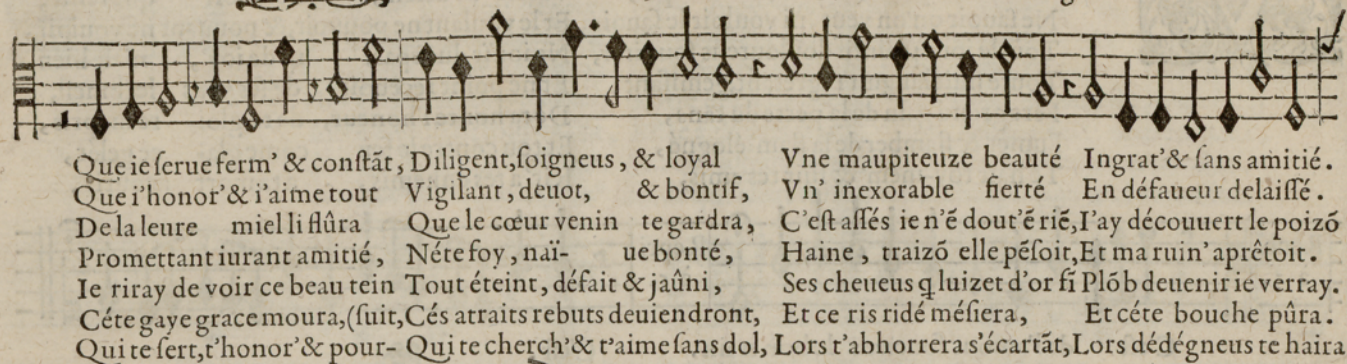 Que ie ſerue ferm' & conſtãt, Diligent, ſoigneus, & loyal Vne maupiteuze beauté Ingrat' & ſans amitié.
Que i'honor' & i'aime tout Vigilant, deuot, & bontif, Vn' inexorable fierté En défaueur delaiſſé.
De la leure miel li flûra Que le cœur venin te gardra, C'eſt aſſés ie n'ẽ dout' ẽ riẽ, I'ay découuert le poizõ
Promettant iurant amitié, Néte foy, naï- ue bonté, Haine, traizõ elle pẽſoit, Et ma ruin' aprêtoit.
Ie riray de voir ce beau tein Tout éteint, défait & jaûni, Ses cheueus q luizet d'or fi Plõb deuenir ie verray.
Céte gaye grace moura, (fuit, Cés atraits rebuts deuiendront, Et ce ris ridé méſiera, Et céte bouche pûra.
Qui te ſert, t'honor' & pour- Qui te cherch' & t'aime ſans dol, Lors t'abhorrera s'écartãt, Lors dédégneus te haira